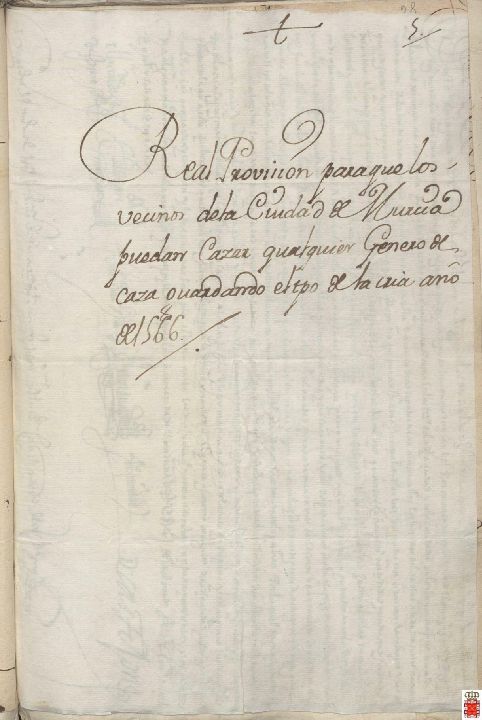 5.
Real Provision para que los
vecinos de la Ciudad de Murcia
puedan Cazar qualquier Genero de
caza guardando el tpo de la cria año
de 1566.